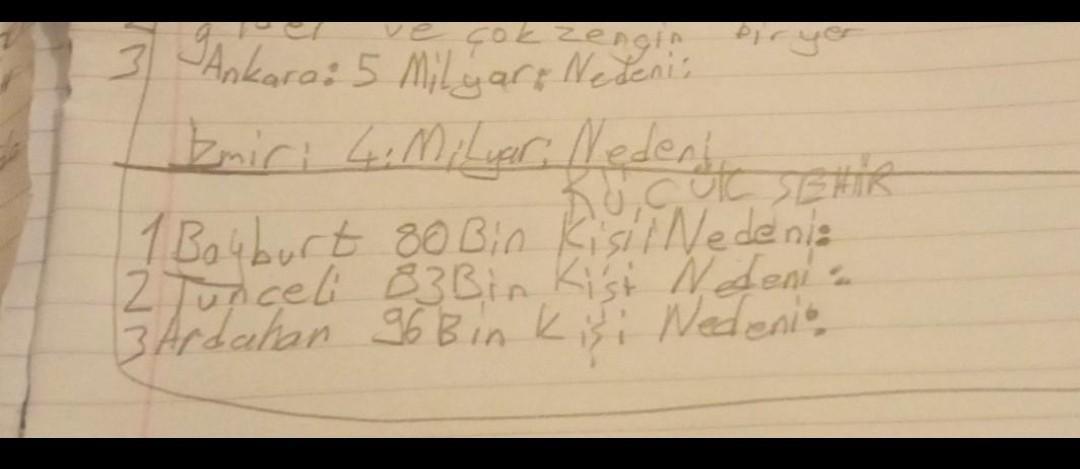 güzel ve çok zengin bir yer
3 Ankara: 5 Milyar: Nedeni:
İzmir: 4: Milyar: Nedeni
KÜÇÜK SEHİR
1 Bayburt 80 Bin Kisi: Nedeni:
2 Tunceli 83 Bin Kişi Nedeni:
3 Ardahan 96 Bin Kişi Nedeni: